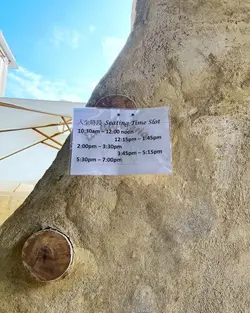 人坐時段 Seating Time Slot
10:30am – 12:00 noon
12:15pm – 1:45pm
2:00pm – 3:30pm
3:45pm – 5:15pm
5:30pm – 7:00pm